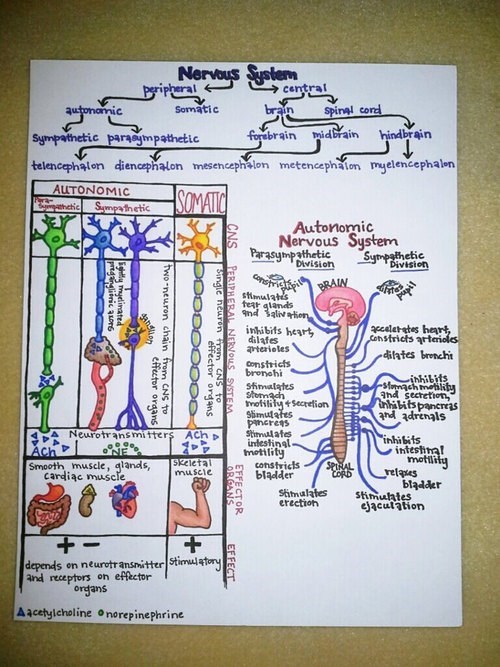 Nervous System
peripheral central
autonomic somatic brain spinal cord
Sympathetic parasympathetic forebrain midbrain hindbrain
telencephalon diencephalon mesencephalon metencephalon myelencephalon
AUTONOMIC
SOMATIC
Para-
Sympathetic
Sympathetic
CNS
PERIPHERAL NERVOUS SYSTEM
EFFECTOR
ORGANS
EFFECT
lightly myelinated
preganglionic axons
ganglion
two-neuron chain from CNS to
effector organs
Single neuron from CNS to
effector organs
Neurotransmitters
ACh
NE
ACh
Smooth muscle, glands,
cardiac muscle
Skeletal
muscle
+ -
+
depends on neurotransmitter
and receptors on effector
organs
Stimulatory
acetylcholine
norepinephrine
Autonomic
Nervous System
Parasympathetic
Division
Sympathetic
Division
constricts
pupil
BRAIN
dilates
pupil
stimulates
tear glands
and salivation
inhibits heart,
dilates
arterioles
constricts
bronchi
Stimulates
Stomach
motility + secretion
Stimulates
pancreas
Stimulates
intestinal
motility
constricts
bladder
Stimulates
erection
SPINAL
CORD
accelerates heart,
constricts arterioles
dilates bronchi
inhibits
stomach motility
and secretion,
inhibits pancreas
and adrenals
inhibits
intestinal
motility
relaxes
bladder
stimulates
ejaculation